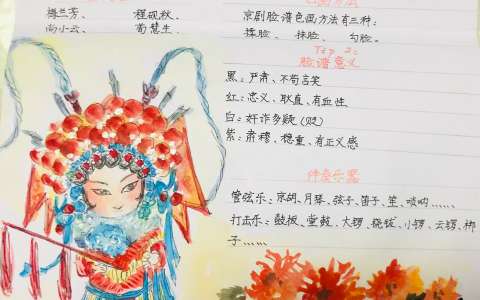 梅兰芳、程砚秋、
尚小云、荀慧生
京剧脸谱色画方法有三种:
揉脸、抹脸、勾脸。
脸谱意义
黑:严肃、不苟言笑
红:忠义、耿直、有血性
白:奸诈多疑(贬)
紫:肃穆、稳重、有正义感
伴奏乐器
管弦乐:京胡、月琴、弦子、笛子、笙、唢呐……
打击乐:鼓板、堂鼓、大锣、铙钹、小锣、云锣、梆
子……